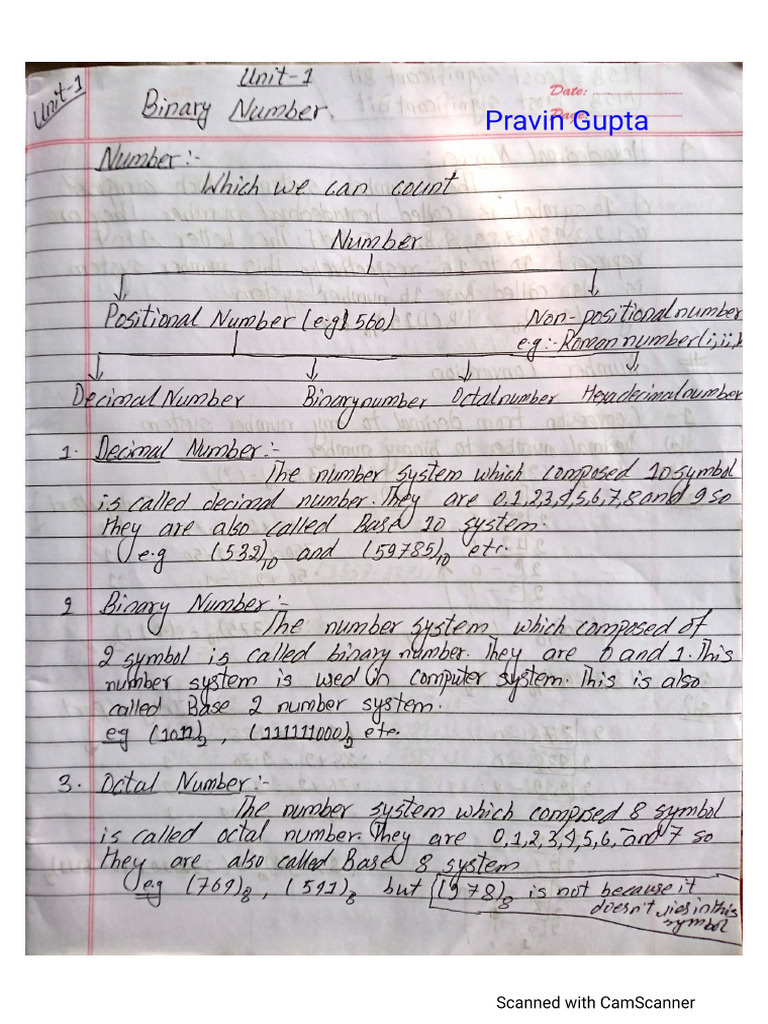 Unit-1
Unit-1
Binary Number.
Date:
Page:
Pravin Gupta
Number:-
Which we can count
Number
Positional Number (e.g 560)
Non-positional number
e.g:-Roman number(i,ii,
Decimal Number Binary number Octal number Hexadecimal number
1. Decimal Number:-
The number system which composed 10 symbol
is called decimal number. They are 0,1,2,3,4,5,6,7,8 and 9 so
they are also called Base 10 system.
e.g (532)10 and (59785)10 etc.
2 Binary Number:-
The number system which composed of
2 symbol is called binary number. They are 0 and 1. This
number system is used in computer system. This is also
called Base 2 number system.
eg (1011)2, (111111000)2 etc.
3. Octal Number:-
The number system which composed 8 symbol
is called octal number. They are 0,1,2,3,4,5,6, and 7 so
they are also called Base 8 system
e.g (764)8, (541)8 but (978)8 is not because it
doesn't lies in this
symbol
Scanned with CamScanner